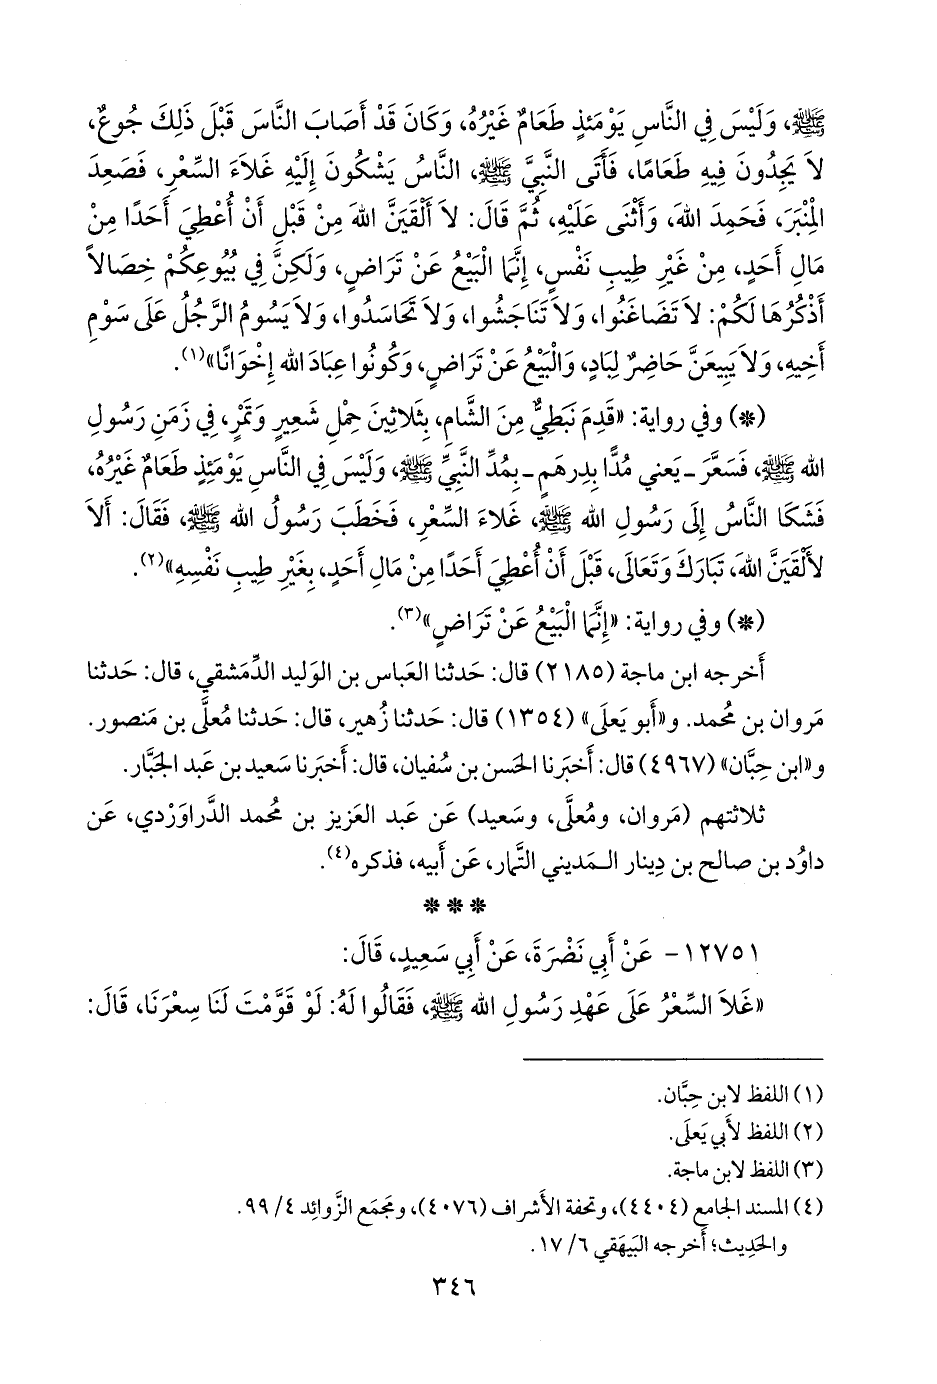 ﷺ، وَلَيْسَ فِي النَّاسِ يَوْمَئِذٍ طَعَامٌ غَيْرُهُ، وَكَانَ قَدْ أَصَابَ النَّاسَ قَبْلَ ذَلِكَ جُوعٌ،
لاَ يَجِدُونَ فِيهِ طَعَامًا، فَأَتَى النَّبِيَّ ﷺ، النَّاسُ يَشْكُونَ إِلَيْهِ غَلاَءَ السِّعْرِ، فَصَعِدَ
الْمِنْبَرَ، فَحَمِدَ اللهَ، وَأَثْنَى عَلَيْهِ، ثُمَّ قَالَ: لاَ أَلْقَيَنَّ اللهَ مِنْ قَبْلِ أَنْ أُعْطِيَ أَحَدًا مِنْ
مَالِ أَحَدٍ، مِنْ غَيْرِ طِيبِ نَفْسٍ، إِنَّمَا الْبَيْعُ عَنْ تَرَاضٍ، وَلَكِنَّ فِي بُيُوعِكُمْ خِصَالاً
أَذْكُرُهَا لَكُمْ: لاَ تَضَاغَنُوا، وَلاَ تَنَاجَشُوا، وَلاَ تَحَاسَدُوا، وَلاَ يَسُومُ الرَّجُلُ عَلَى سَوْمِ
أَخِيهِ، وَلاَ يَبِيعَنَّ حَاضِرٌ لِبَادٍ، وَالْبَيْعُ عَنْ تَرَاضٍ، وَكُونُوا عِبَادَ الله إِخْوَانًا»(١).
(*) وفي رواية: «قَدِمَ نَبَطِيٌّ مِنَ الشَّامِ، بِثَلاَثِينَ حِمْلِ شَعِيرٍ وَتَمْرٍ، فِي زَمَنِ رَسُولِ
الله ﷺ، فَسَعَّرَ ـ يَعني مُدًّا بِدِرهَمٍ ـ بِمُدِّ النَّبِيِّ ﷺ، وَلَيْسَ فِي النَّاسِ يَوْمَئِذٍ طَعَامٌ غَيْرُهُ،
فَشَكَا النَّاسُ إِلَى رَسُولِ الله ﷺ، غَلاَءَ السِّعْرِ، فَخَطَبَ رَسُولُ الله ﷺ، فَقَالَ: أَلاَ
لأَلْقَيَنَّ اللهَ، تَبَارَكَ وَتَعَالَى، قَبْلَ أَنْ أُعْطِيَ أَحَدًا مِنْ مَالِ أَحَدٍ، بِغَيْرِ طِيبِ نَفْسِهِ»(٢).
(*) وفي رواية: «إِنَّمَا الْبَيْعُ عَنْ تَرَاضٍ»(٣).
أَخرجه ابن ماجة (٢١٨٥) قال: حَدثنا العَباس بن الوَليد الدِّمَشقي، قال: حَدثنا
مَروان بن مُحمد. و«أَبو يَعلَى» (١٣٥٤) قال: حَدثنا زُهير، قال: حَدثنا مُعلَّى بن مَنصور.
و«ابن حِبَّان» (٤٩٦٧) قال: أَخبَرنا الحَسن بن سُفيان، قال: أَخبَرنا سَعيد بن عَبد الجَبَّار.
ثلاثتهم (مَروان، ومُعلَّى، وسَعيد) عَن عَبد العَزيز بن مُحمد الدَّراوَرْدي، عَن
داوُد بن صالح بن دِينار الـمَديني التَّمار، عَن أَبيه، فذكره(٤).
* * *
١٢٧٥١- عَنْ أَبِي نَضْرَةَ، عَنْ أَبِي سَعِيدٍ، قَالَ:
«غَلاَ السِّعْرُ عَلَى عَهْدِ رَسُولِ الله ﷺ، فَقَالُوا لَهُ: لَوْ قَوَّمْتَ لَنَا سِعْرَنَا، قَالَ:
(١) اللفظ لابن حِبَّان.
(٢) اللفظ لأَبي يَعلَى.
(٣) اللفظ لابن ماجة.
(٤) المسند الجامع (٤٤٠٤)، وتحفة الأَشراف (٤٠٧٦)، ومَجمَع الزَّوائِد ٤/ ٩٩.
والحَدِيث؛ أَخرجه البَيهَقي ٦/ ١٧.
٣٤٦